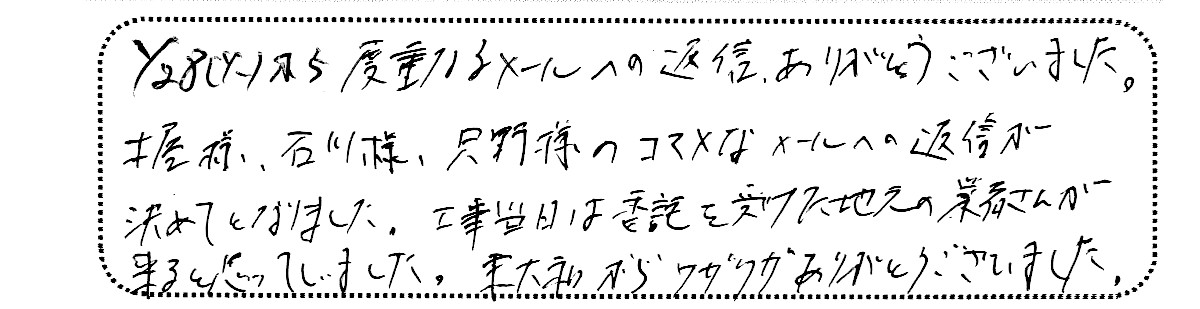 Y28(Y-)から度重なるメールへの返信、ありがとうございました。
土屋様、石川様、只野様のコマメなメールへの返信が
決めてとなりました。工事当日は委託を受けた地元の業者さんが
来ると思っていました。東大和からワザワザありがとうございました。